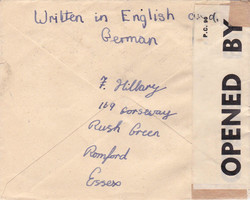 Written in English and
German
F. Hillary
169 Dorseway
Rush Green
Romford
Essex
P.C. 90
OPENED BY